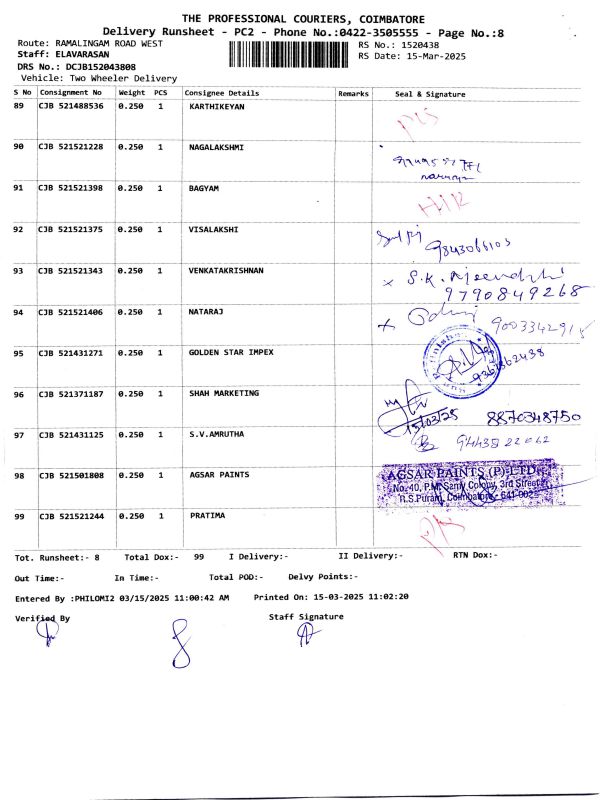 THE PROFESSIONAL COURIERS, COIMBATORE
Delivery Runsheet - PC2 - Phone No.:0422-3505555 - Page No.:8
Route: RAMALINGAM ROAD WEST
RS No.: 1520438
Staff: ELAVARASAN
RS Date: 15-Mar-2025
DRS No.: DCJB152043808
Vehicle: Two Wheeler Delivery
S No Consignment No Weight PCS Consignee Details Remarks Seal & Signature
89 CJB 521488536 0.250 1 KARTHIKEYAN
90 CJB 521521228 0.250 1 NAGALAKSHMI
91 CJB 521521398 0.250 1 BAGYAM
92 CJB 521521375 0.250 1 VISALAKSHI
9843066103
93 CJB 521521343 0.250 1 VENKATAKRISHNAN
9790849268
94 CJB 521521406 0.250 1 NATARAJ
9003342915
95 CJB 521431271 0.250 1 GOLDEN STAR IMPEX
96 CJB 521371187 0.250 1 SHAH MARKETING
15/03/25 8870348750
97 CJB 521431125 0.250 1 S.V.AMRUTHA
94438 22062
98 CJB 521501808 0.250 1 AGSAR PAINTS
AGSAR PAINTS (P) LTD.,
No. 40, P.M. Samy Colony, 3rd Street,
R.S.Puram, Coimbatore - 641 002
99 CJB 521521244 0.250 1 PRATIMA
Tot. Runsheet:- 8 Total Dox:- 99 I Delivery:- II Delivery:- RTN Dox:-
Out Time:- In Time:- Total POD:- Delvy Points:-
Entered By :PHILOMI2 03/15/2025 11:00:42 AM Printed On: 15-03-2025 11:02:20
Verified By Staff Signature